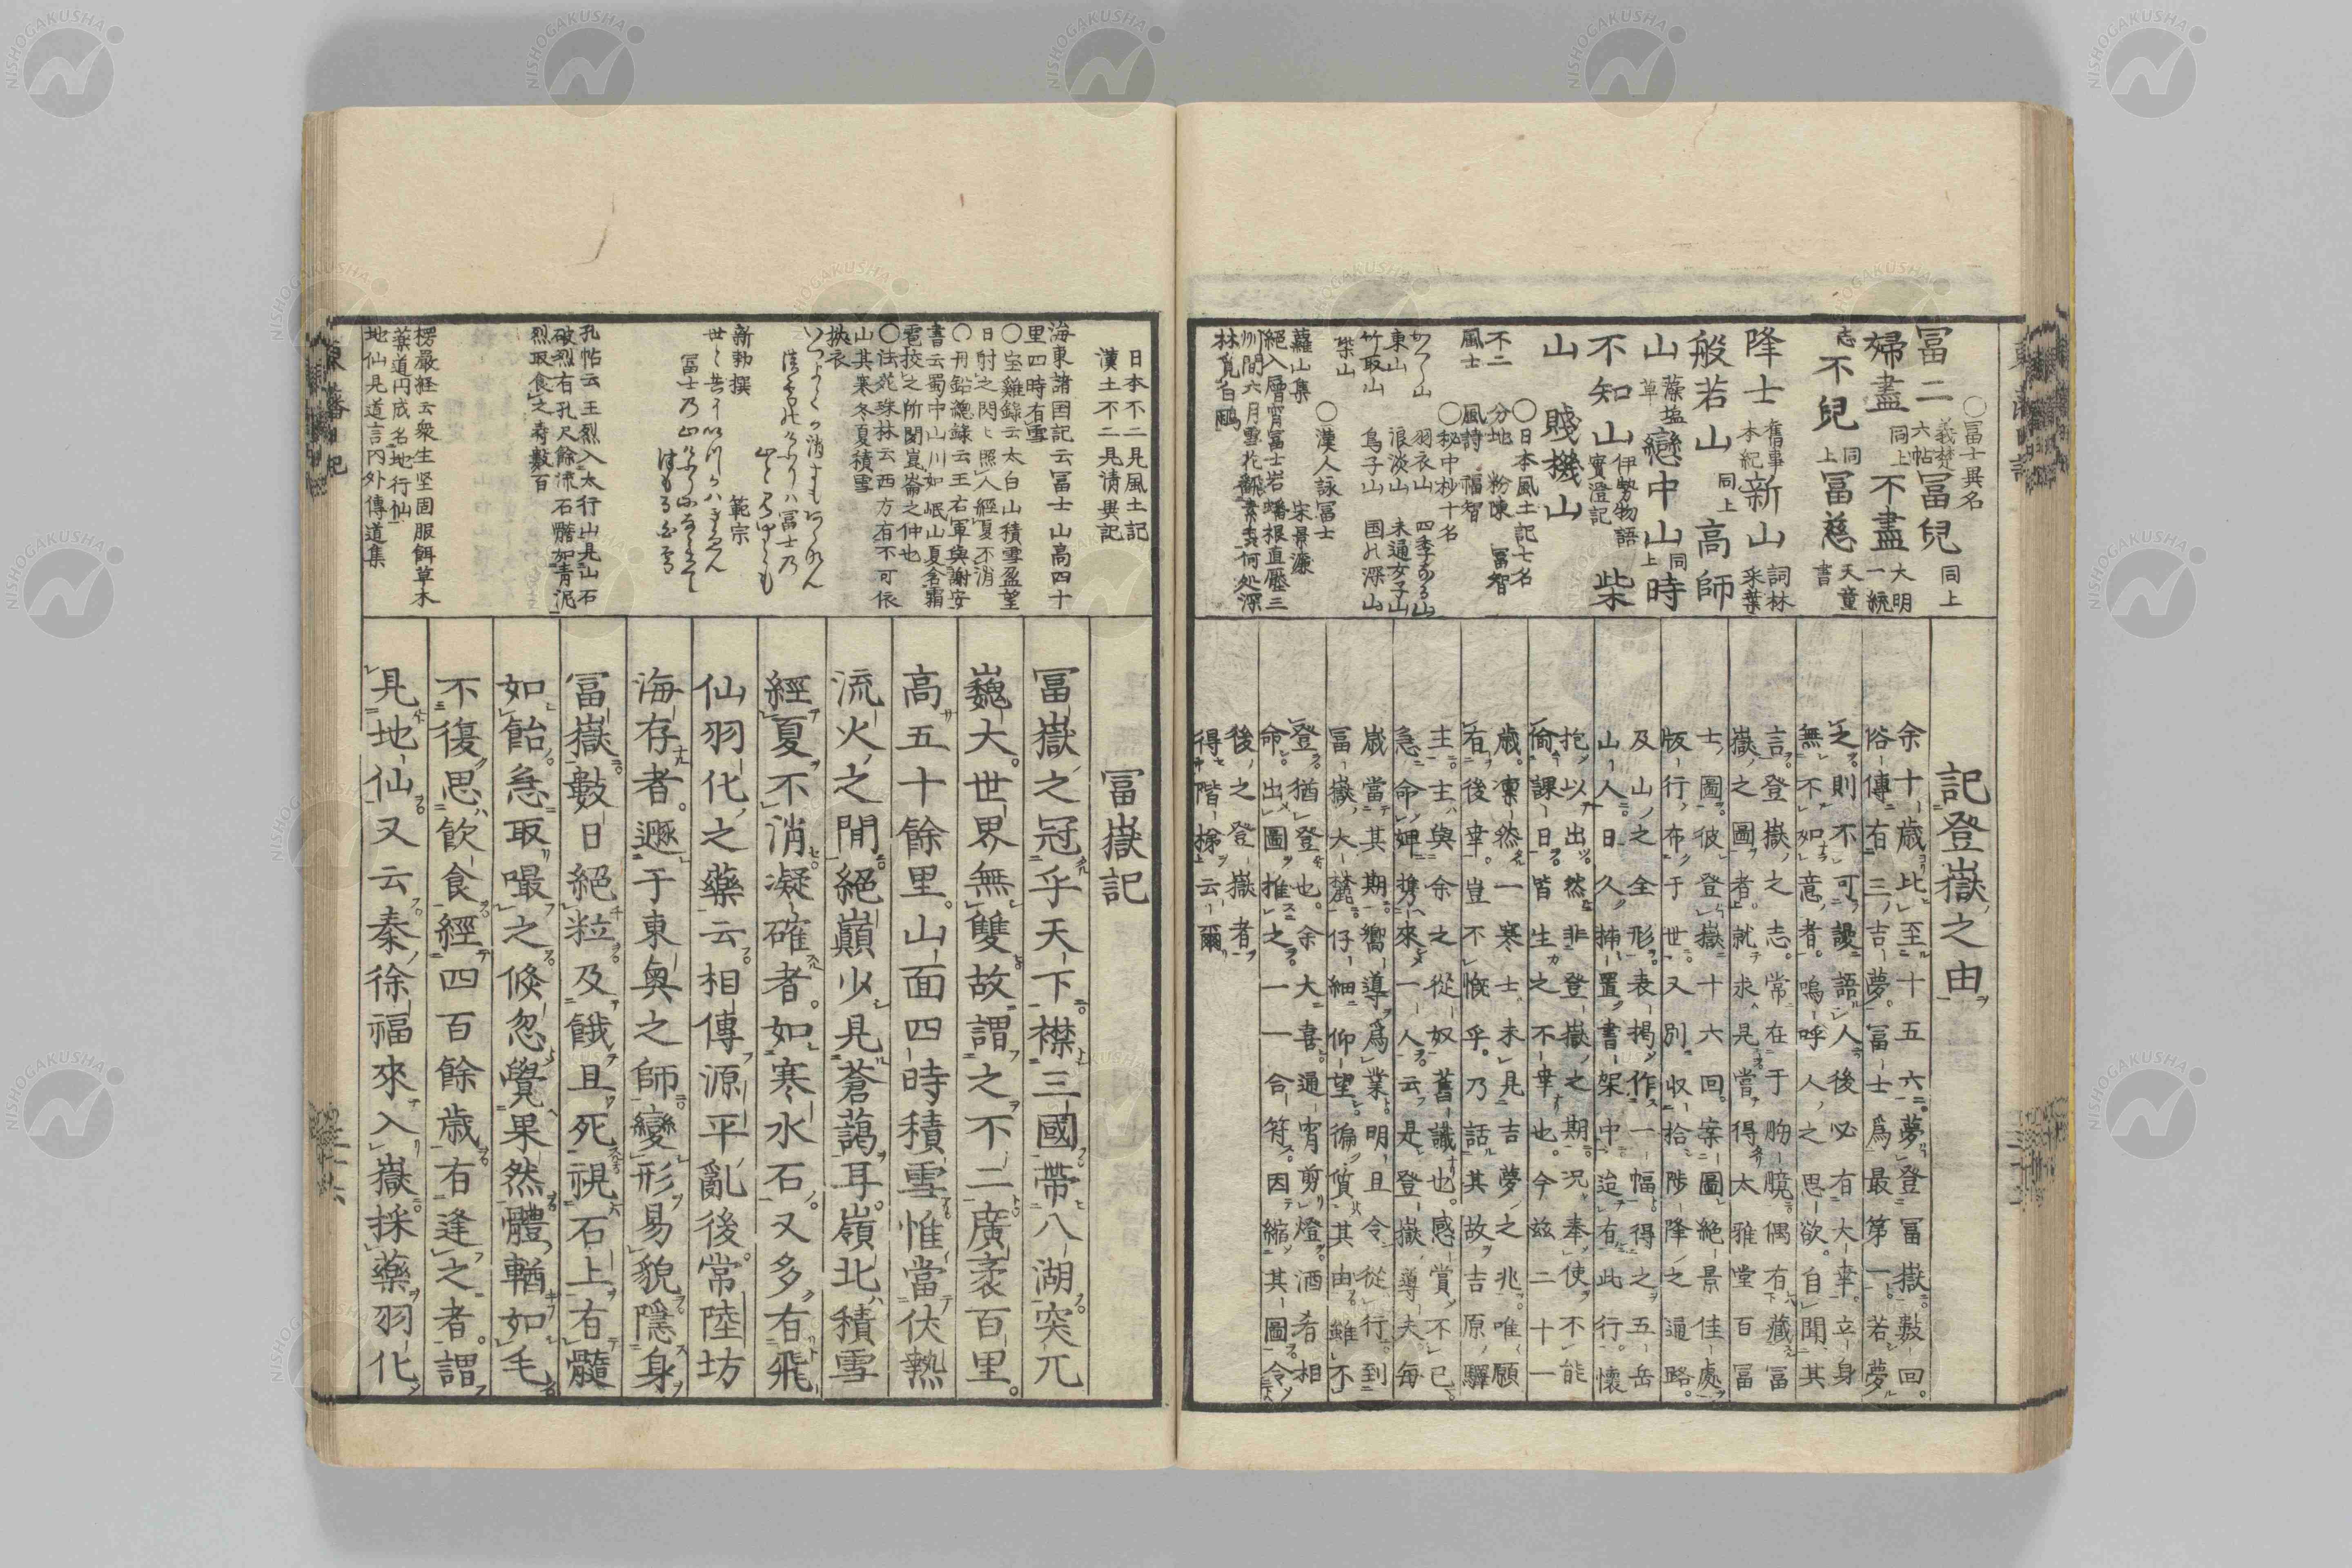 ○冨士異名
冨二 義楚六帖 冨兒 同上
婦盡 同上 不盡 大明一統
志 不兒 同上 冨慈 天童書
降士 舊事本紀 新山 詞林采葉
般若山 同上 高師
山 藻塩草 戀中山 同上 時
不知山 伊勢物語 實澄記 柴
山 賤機山
○日本風土記七名
不二 分地 粉陳 冨智
風士 風詩 福智
○秘中杪十名
羽衣山 四季なる山
東山 浪淡山 未通女子山
竹取山 鳥子山 国の深山
柴山
○漢人詠冨士
蘿山集 宋景濂
絕入層宵富士岩蟠根直壓三
州間六月雪花飜素毳何処深
林覓白鷴
記登嶽之由
余十歳比至十五六夢登冨嶽數回
俗傳有三吉夢冨士爲最第一若夢
之則不可謾語人後必有大幸立身
無不如意者嗚呼人之思欲自聞其
言登嶽之志常在于胸臆偶有藏冨
嶽之圖者就求見嘗得太雅堂百冨
士圖彼登嶽十六回案圖絕景佳處
版行布于世又別收拾陟降之通路
及山之全形表掲作一幅得之五岳
山人日久挿置書架中迨有此行懷
抱以出然非登嶽之期况奉使不能
偷課日皆生之不幸也今兹二十一
歳凛然一寒士未見吉夢之兆唯願
有後幸豈不慨乎乃話其故吉原驛
主主與余之從奴舊識也感賞不已
急命婢携來一人云是登嶽導夫每
歳當其期嚮導爲業明且令從行到
冨嶽大麓仔細仰望徧質其由雖不
登猶登也余大喜通宵剪燈酒肴相
命出圖推之一一合符因縮其圖令
後之登嶽者
得階梯云爾
日本不二見風土記
漢土不二見清異記
海東諸国記云冨士山高四十
里四時有雪
○宝雞錄云太白山積雪盈望
日射之閃〻照人經夏不消
○丹鉛總錄云王右軍與謝安
書云蜀中山川如岷山夏含霜
雹挍之所聞崑崙之仲也
○法苑珠林云西方有不可依
山其寒冬夏積雪
執衣
新勅撰 範宗
孔帖云王烈入太行山見山石
破烈有孔尺餘沫石髓如青泥
烈取食之壽數百
楞嚴経云衆生坚固服餌草木
薬道円成名地行仙
地仙見道言内外傳道集
冨嶽記
冨嶽之冠乎天下襟三國帶八湖突兀
巍大世界無雙故謂之不二廣袤百里
高五十餘里山面四時積雪惟當伏熱
流火之間絕巔少見蒼藹耳嶺北積雪
經夏不消凝確者如寒水石又多有飛
仙羽化之藥云相傳源平亂後常陸坊
海存者遯于東奥之師變形易貌隱身
冨嶽數日絕粒及餓且死視石上有髓
如飴急取嘬之倏忽覺果然體輶如毛
不復思飲食經四百餘歳有逢之者謂
見地仙又云秦徐福來入嶽採藥羽化